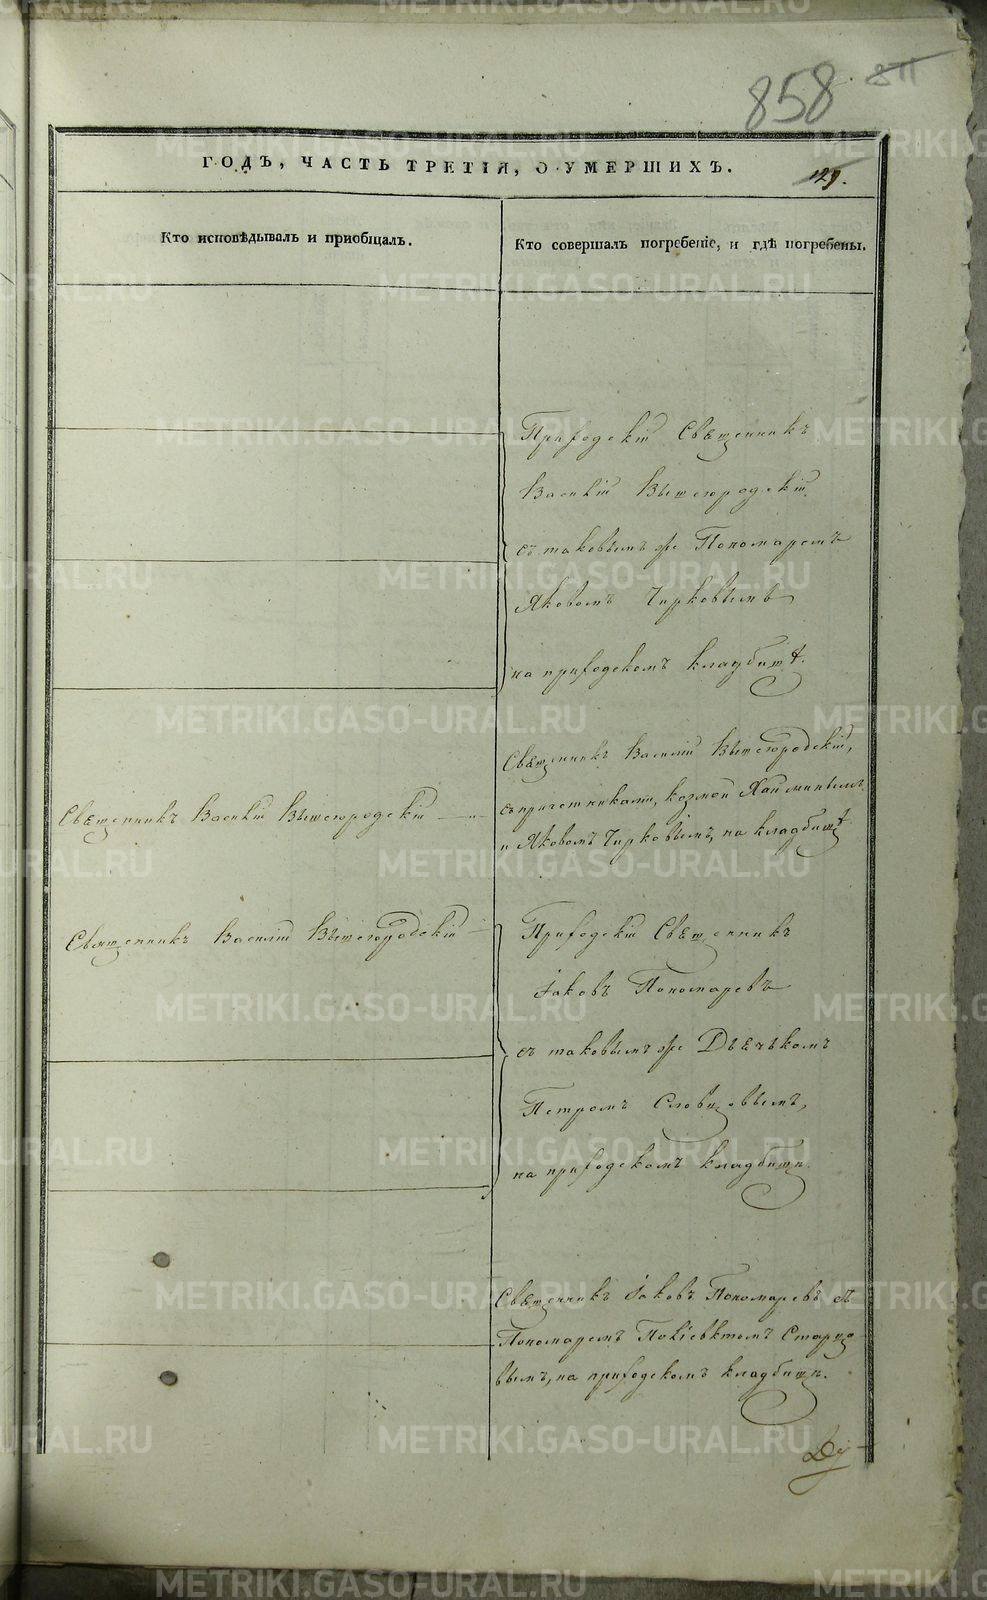 858 811
ГОДЪ, ЧАСТЬ ТРЕТІЯ, О УМЕРШИХЪ.
129.
Кто исповѣдывалъ и приобщалъ.
Кто совершалъ погребеніе, и гдѣ погребены.
Приходскій Священникъ
Василій Вышегородскій
съ таковымъ же Пономаремъ
Яковомъ Чирковымъ
на приходскомъ кладбищѣ.
Священникъ Василій Вышегородскій,
съ причетниками, козмой
и Яковомъ Чирковымъ, на кладбищѣ
Священникъ Василій Вышегородскій
Священникъ Василій Вышегородскій
Приходскій Священникъ
Іаковъ Пономаревъ
съ таковымъ же Дьячькомъ
Петромъ Словцовымъ,
на приходскомъ кладбищѣ.
Священникъ Іаковъ Пономаревъ съ
Пономаремъ Старцо
вымъ, на приходскомъ кладбищѣ.
METRIKI.GASO-URAL.RU